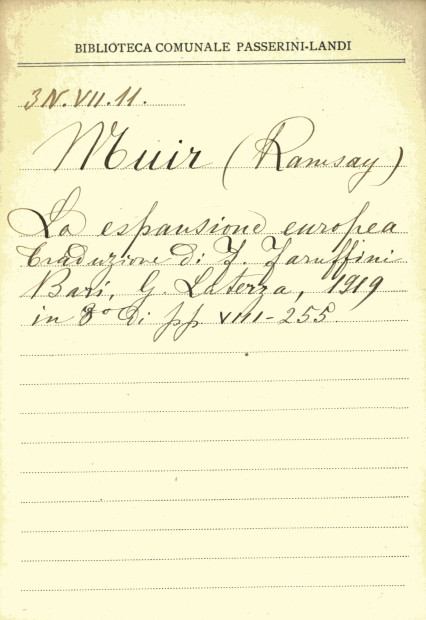 BIBLIOTECA COMUNALE PASSERINI-LANDI
3N.VII.11.
Muir (Ramsay)
La espansione europea
traduzione di Z. Zaruffini
Bari, G. Laterza, 1919
in 8° di pp VIII-255